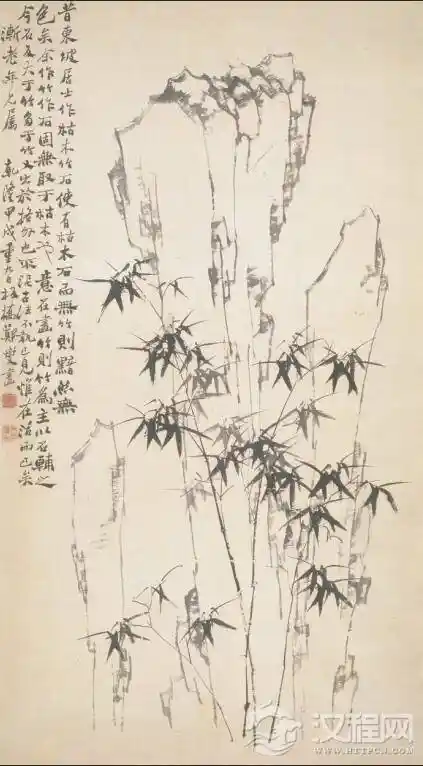 昔東坡居士作枯木竹石使有枯木石而無竹則黯然無
色矣余作竹作石固無取于枯木也意在畫竹則竹為主以石輔之
今石反大于竹多于竹又出於格外也不泥古法不執己見惟在活而已矣
漸老年兄屬 乾隆甲戌重九日板橋鄭燮畫
汉程网
WWW.HTTPCN.COM